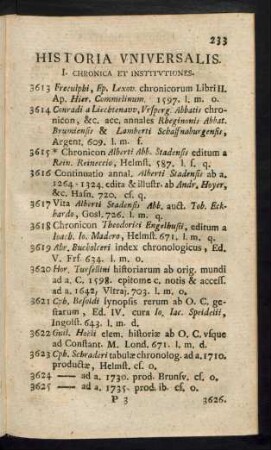 233
HISTORIA VNIVERSALIS.
I. CHRONICA ET INSTITVTIONES.
3613 Freculphi, Ep. Lexov. chronicorum Libri II.
Ap. Hier. Commelinum. 1597. l. m. o.
3614 Conradi a Liechtenaw, Vrsperg. Abbatis chro-
nicon, &c. acc. annales Rheginonis Abbat.
Brumiensis & Lamberti Schaffnaburgensis,
Argent. 609. l. m. f.
3615 * Chronicon Alberti Abb. Stadensis editum a
Rein. Reineccio, Helmst. 587. l. s. q.
3616 Continuatio annal. Alberti Stadensis ab a.
1264-1324. edita & illustr. ab Andr. Hoyer,
&c. Hafn. 720. cf. q.
3617 Vita Alberti Stadensis Abb. auct. Tob. Eck-
hardo, Gosl. 726. l. m. q.
3618 Chronicon Theodorici Engelhusii, editum a
Ioach. Io. Madero, Helmst. 671. l. m. q.
3619 Abr. Bucholceri index chronologicus, Ed.
V. Frf. 634. l. m. o.
3620 Hor. Tursellini historiarum ab orig. mundi
ad a. C. 1598. epitome c. notis & access.
ad a. 1642, Vltraj. 703. l. m. o.
3621 Cph. Besoldi synopsis rerum ab O. C. ge-
starum, Ed. IV. cura Io. Iac. Speidelii,
Ingolst. 643. l. m. d.
3622 Guil. Hotii elem. historiæ ab O. C. vsque
ad Constant. M. Lond. 671. l. m. d.
3623 Cph. Schraderi tabulæ chronolog. ad a. 1710.
productæ, Helmst. cf. o.
3624 —— ad a. 1730. prod. Brunsv. cf. o.
3625 —— ad a. 1735. prod. ib. cf. o.
P 3 3626.